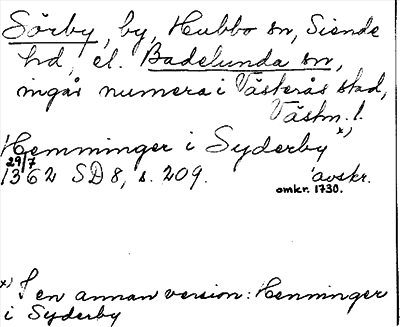 Sörby, by, Hubbo sn, Siende
hd, el. Badelunda sn,
ingår numera i Västerås stad,
Västm. l.
Hemminger i Syderby x)
29/7
1362 SD 8, s. 209. avskr.
omkr. 1730.
x) I en annan version: Henninger
i Syderby